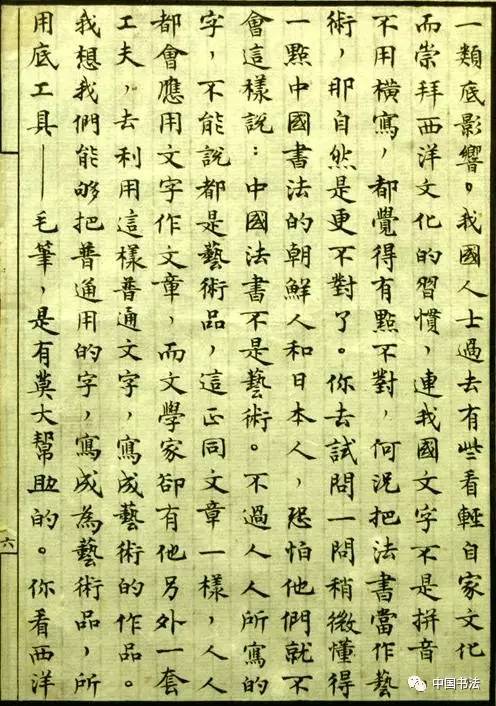 一類底影響。我國人士過去有些看輕自家文化
而崇拜西洋文化的習慣，連我國文字不是拼音
不用橫寫，都覺得有點不對，何況把法書當作藝
術，那自然是更不對了。你去試問一問稍微懂得
一點中國書法的朝鮮人和日本人，恐怕他們就不
會這樣說：中國法書不是藝術。不過人人所寫的
字，不能說都是藝術品，這正同文章一樣，人人
都會應用文字作文章，而文學家卻有他另外一套
工夫，去利用這樣普通文字，寫成藝術的作品。
我想我們能够把普通用的字，寫成為藝術品，所
用底工具——毛筆，是有莫大幫助的。你看西洋
六
中国书法